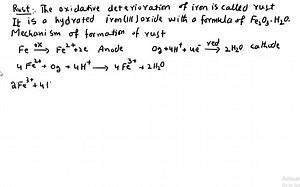 Rust:- The oxidative deterioration of iron is called rust
It is a hydrated iron(III) oxide with a formula of Fe₂O₃·H₂O.
Mechanism of formation of rust
Fe –ox→ Fe²⁺+2e Anode O₂+4H⁺+4e⁻ –red→ 2H₂O cathode
4Fe²⁺ + O₂ + 4H⁺ → 4Fe³⁺ + 2H₂O
2Fe³⁺ + 4H